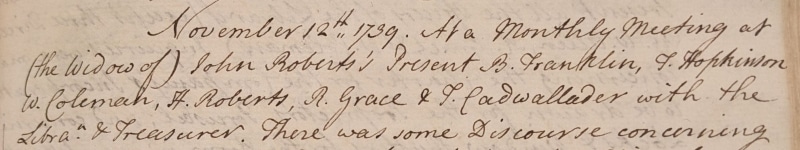 November 12th, 1739. At a Monthly Meeting at
(the Widow of) John Roberts's Present B. Franklin, T. Hopkinson
W. Coleman, H. Roberts, R. Grace & T. Cadwallader with the
Libran. & Treasurer. There was some Discourse concerning